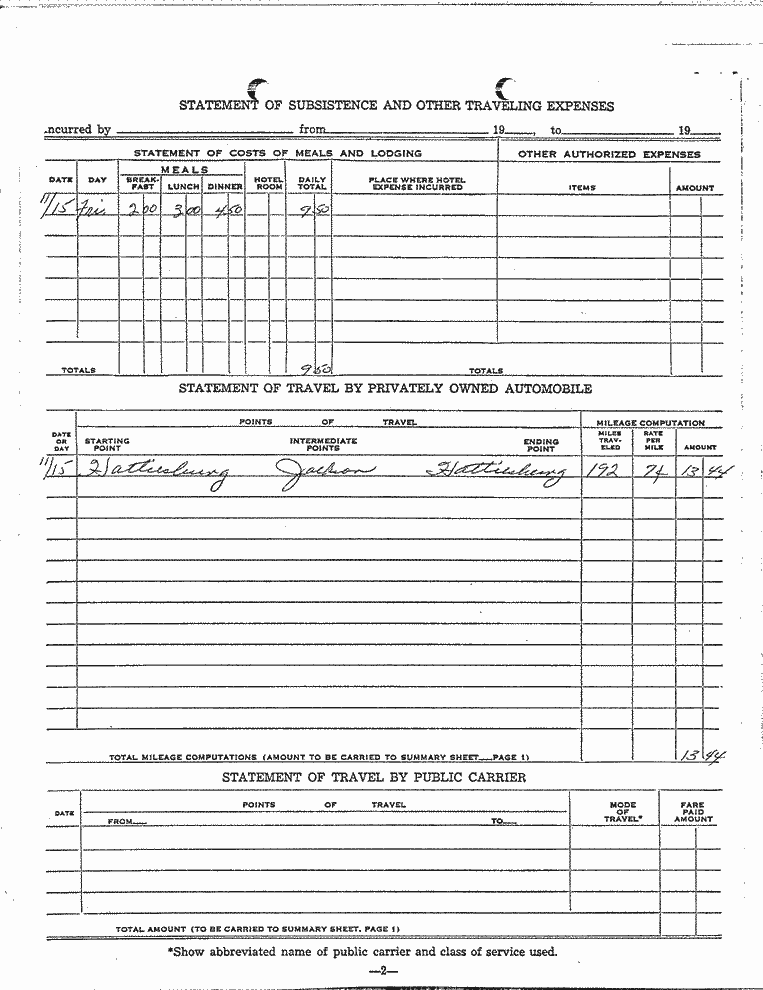 STATEMENT OF SUBSISTENCE AND OTHER TRAVELING EXPENSES
ncurred by from 19 , to 19
STATEMENT OF COSTS OF MEALS AND LODGING OTHER AUTHORIZED EXPENSES
MEALS
DATE DAY BREAK- LUNCH DINNER HOTEL DAILY PLACE WHERE HOTEL ITEMS AMOUNT
FAST ROOM TOTAL EXPENSE INCURRED
11/15 Fri. 2 00 3 00 4 50 9 50
TOTALS 9 50 TOTALS
STATEMENT OF TRAVEL BY PRIVATELY OWNED AUTOMOBILE
POINTS OF TRAVEL MILEAGE COMPUTATION
DATE STARTING INTERMEDIATE ENDING MILES RATE
OR POINT POINTS POINT TRAV- PER AMOUNT
DAY ELED MILE
11/15 Hattiesburg Jackson Hattiesburg 192 7¢ 13 44
TOTAL MILEAGE COMPUTATIONS (AMOUNT TO BE CARRIED TO SUMMARY SHEET—PAGE 1) 13 44
STATEMENT OF TRAVEL BY PUBLIC CARRIER
POINTS OF TRAVEL MODE FARE
DATE OF PAID
FROM— TO— TRAVEL* AMOUNT
TOTAL AMOUNT (TO BE CARRIED TO SUMMARY SHEET, PAGE 1)
*Show abbreviated name of public carrier and class of service used.
—2—